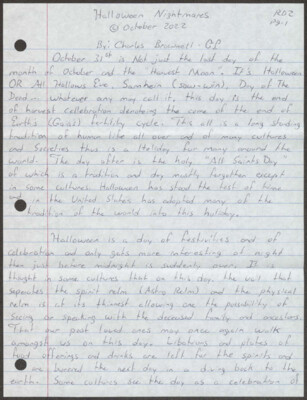 Halloween Nightmares
RDZ
Pg. 1
© October 2002
By: Charles Brownell - GL
October 31st is Not just the last day of the
month of October and the "Harvest Moon". It's Halloween
OR All Hallows Eve, Samhain (sow-win), Day of The
Dead - whatever any may call it, this day is the end
of harvest celebration denoting the end of
Earth's (Gaia) fertility cycle. This all is a long standing
tradition of human life all over and of many cultures
and Societies thus is a Holiday for many around the
world. The day after is the holy "All Saints Day"
of which is a tradition and day mostly forgotten except
in some cultures. Halloween has stood the test of time
and in the United States has adopted many of the
tradition of the world into this holiday.
Halloween is a day of festivities and of
celebration and only gets more interesting at night
then just before midnight is suddenly over. It is
thought in some cultures that on this day the veil that
seperates the spirit realm (Astral Realm) and the physical
realm is at its thinest allowing one the possibility of
Seeing or speaking with the deceased family and ancestors.
That our past loved ones may once again walk
amongst us on this day. Libations and plates of
food offerings and drinks are left for the spirits and
are burned the next day in a giving back to the
earth. Some cultures see the day as a celebration of